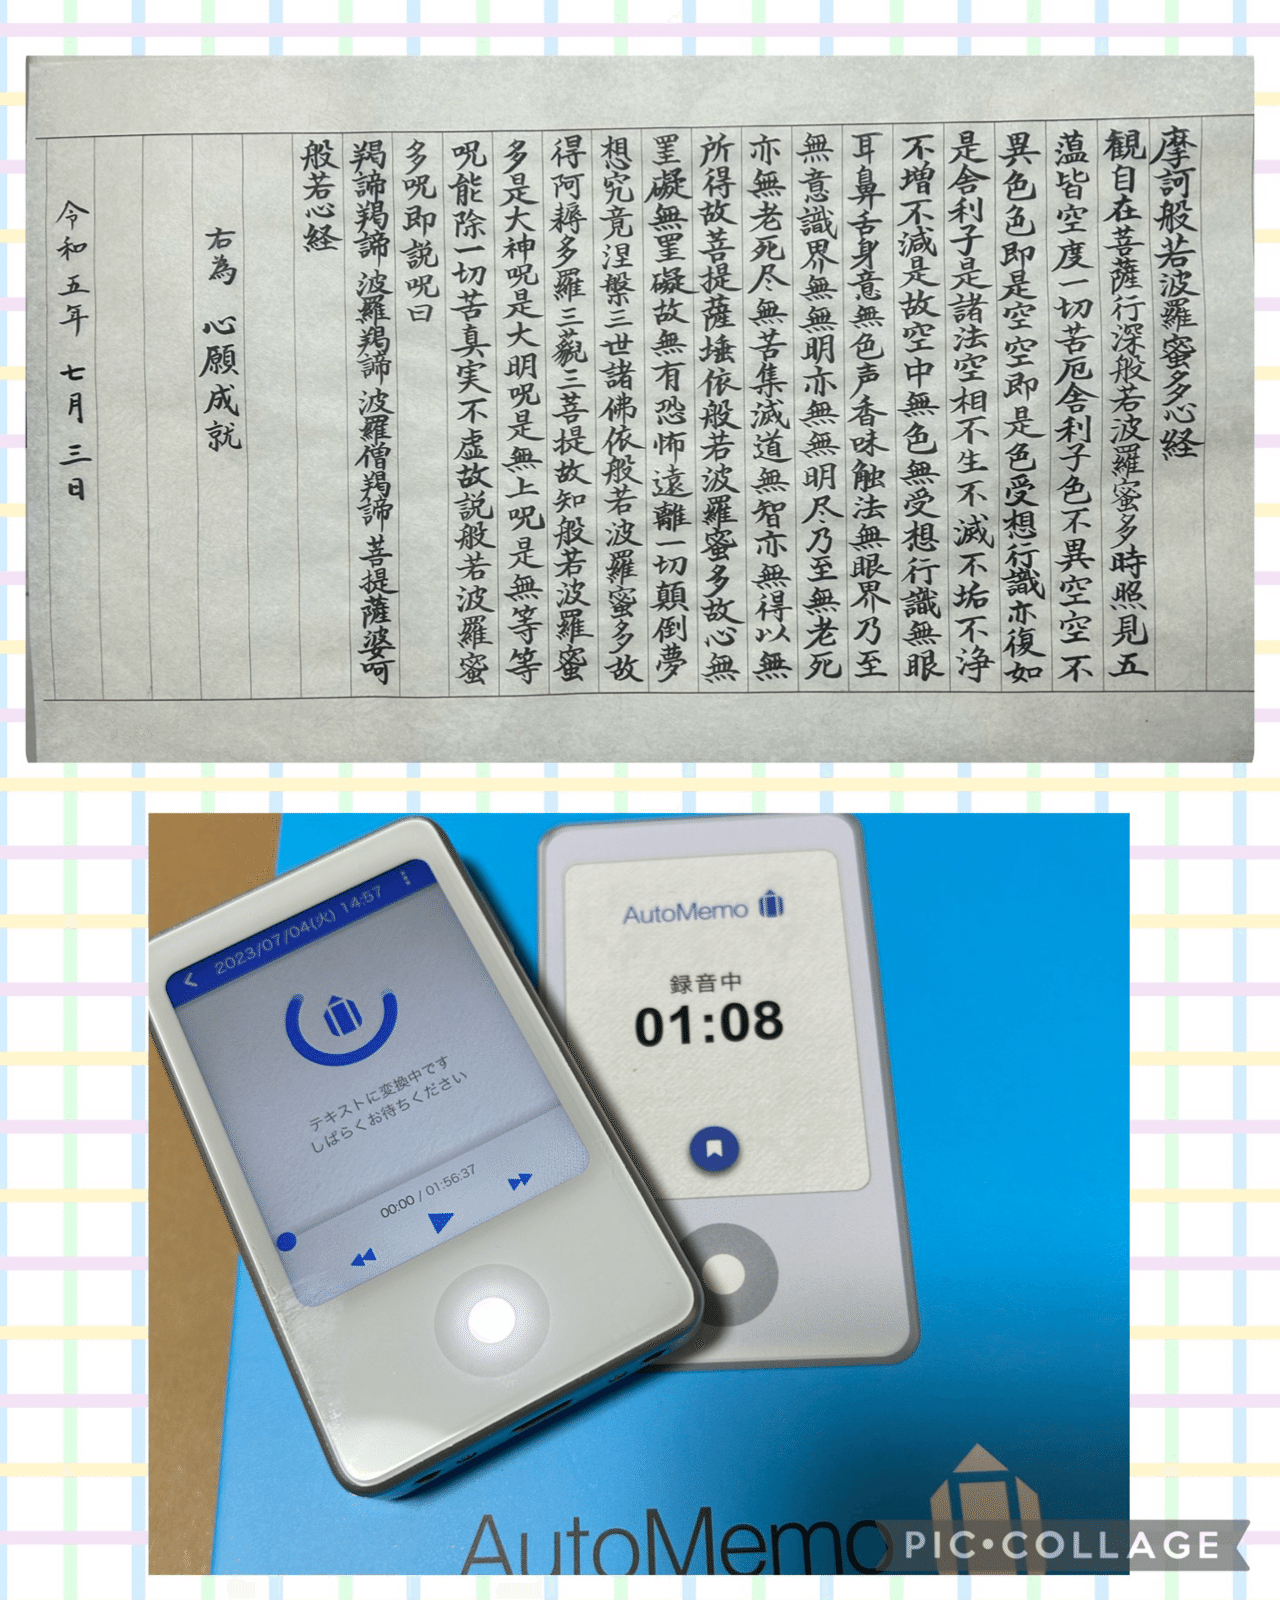 摩訶般若波羅蜜多心経
観自在菩薩行深般若波羅蜜多時照見五
蕰皆空度一切苦厄舎利子色不異空空不
異色色即是空空即是色受想行識亦復如
是舎利子是諸法空相不生不滅不垢不浄
不増不減是故空中無色無受想行識無眼
耳鼻舌身意無色声香味触法無眼界乃至
無意識界無無明亦無無明尽乃至無老死
亦無老死尽無苦集滅道無智亦無得以無
所得故菩提薩埵依般若波羅蜜多故心無
罣礙無罣礙故無有恐怖遠離一切顛倒夢
想究竟涅槃三世諸佛依般若波羅蜜多故
得阿耨多羅三藐三菩提故知般若波羅蜜
多是大神呪是大明呪是無上呪是無等等
呪能除一切苦真実不虚故説般若波羅蜜
多呪即説呪曰
羯諦羯諦 波羅羯諦 波羅僧羯諦 菩提薩婆呵
般若心経
右為 心願成就
令和五年 七月 三日
2023/07/04(火) 14:57
テキストに変換中です
しばらくお待ちください
00:00 / 01:56:37
AutoMemo
録音中
01:08
AutoMemo
PIC•COLLAGE